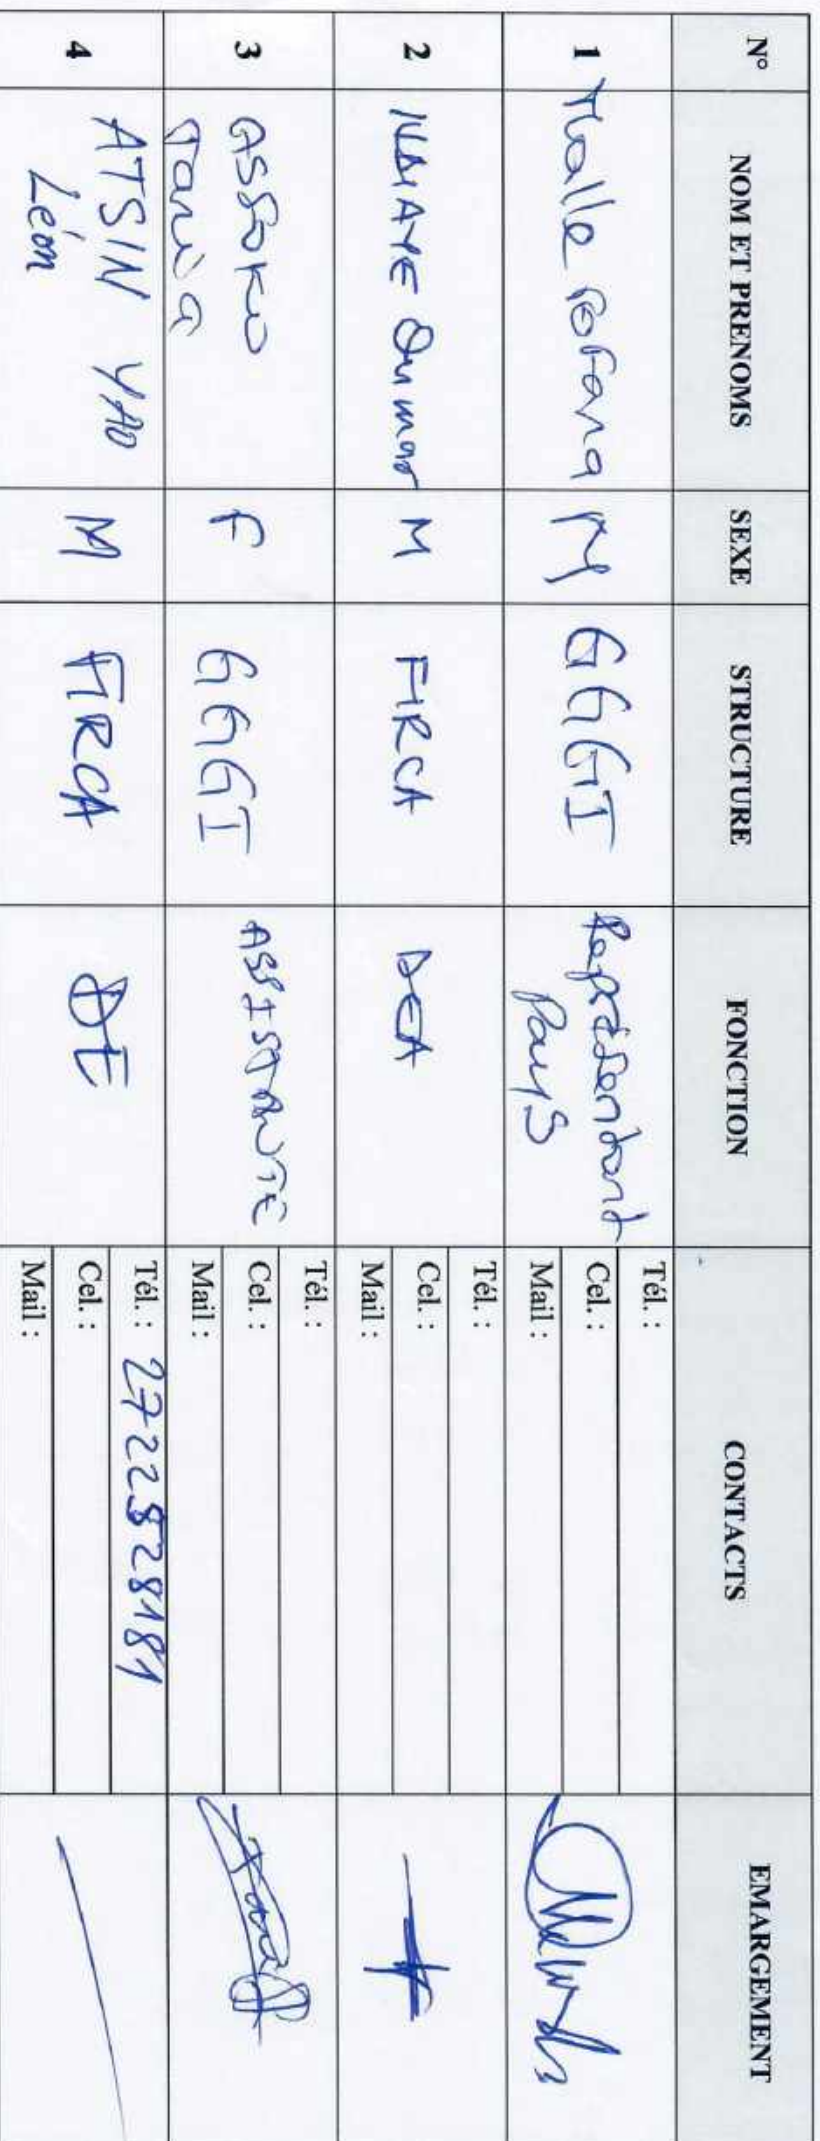 N° NOM ET PRENOMS SEXE STRUCTURE FONCTION CONTACTS EMARGEMENT
1 Malle Fofana M GGGI Représentant
Pays
Tél. :
Cel. :
Mail :
2 NDIAYE Oumar M FIRCA DEA
Tél. :
Cel. :
Mail :
3 ASSOKO
Tania
F GGGI ASSISTANTE
Tél. :
Cel. :
Mail :
4 ATSIN YAO
Léon
M FIRCA DE
Tél. : 2722528181
Cel. :
Mail :